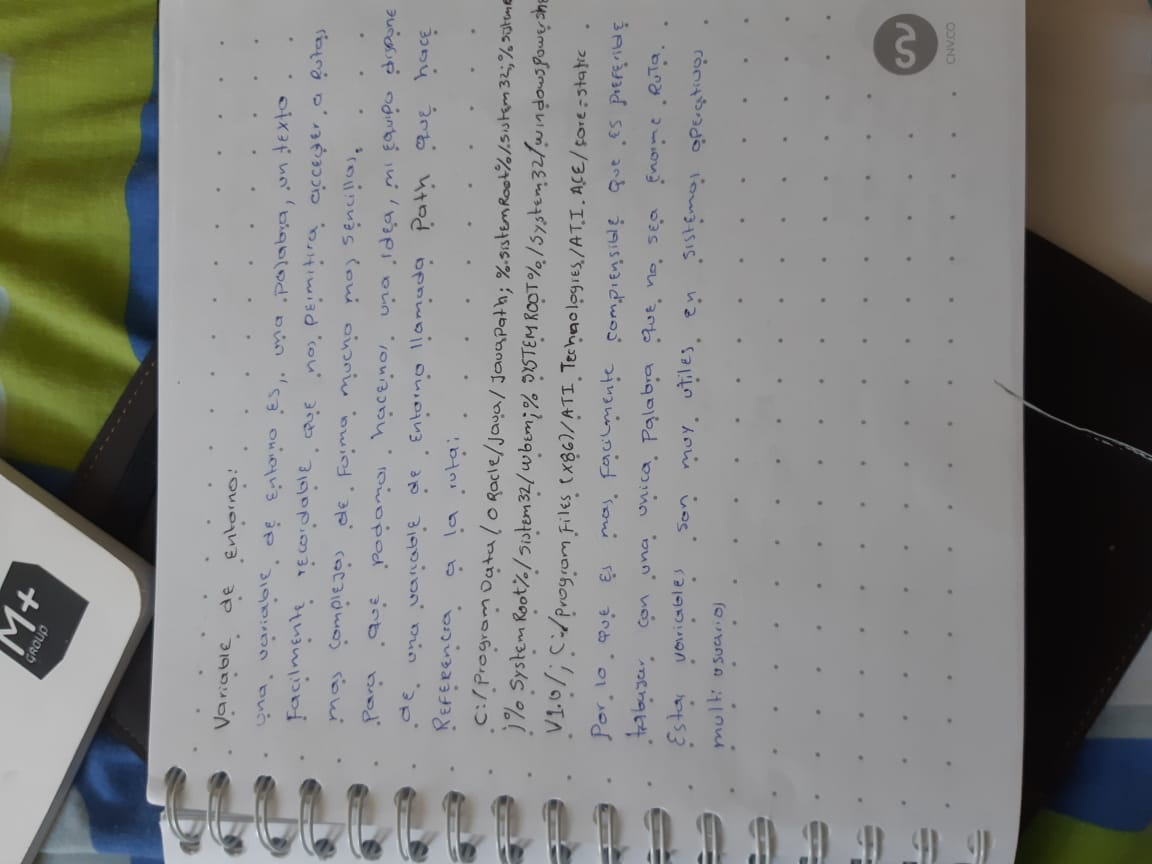 Variable de Entorno:
una variable de entorno es, una palabra, un texto
Facilmente recordable que nos permitira acceder a Rutas
mas complejas de Forma mucho mas sencillas.
Para que podamos hacernos una idea, mi equipo dispone
de una variable de Entorno llamada Path que hace
Referencia a la ruta:
C:/ProgramData/oRacle/Java/Javapath; %sistemRoot%/sistem32;%sistem
;% SystemRoot%/Sistem32/wbem;% SYSTEMROOT%/System32/windowspowershe
V1.0/; C:/program Files (x86)/ATI Technologies/ATI.ACE/core-static
Por lo que es mas Facilmente compiensible que es preferible
trabajar con una unica Palabra que no sea Enorme Ruta.
Estas variables son muy utiles en sistemas operativos
multi usuarios
M+
GROUP
CNV.CO